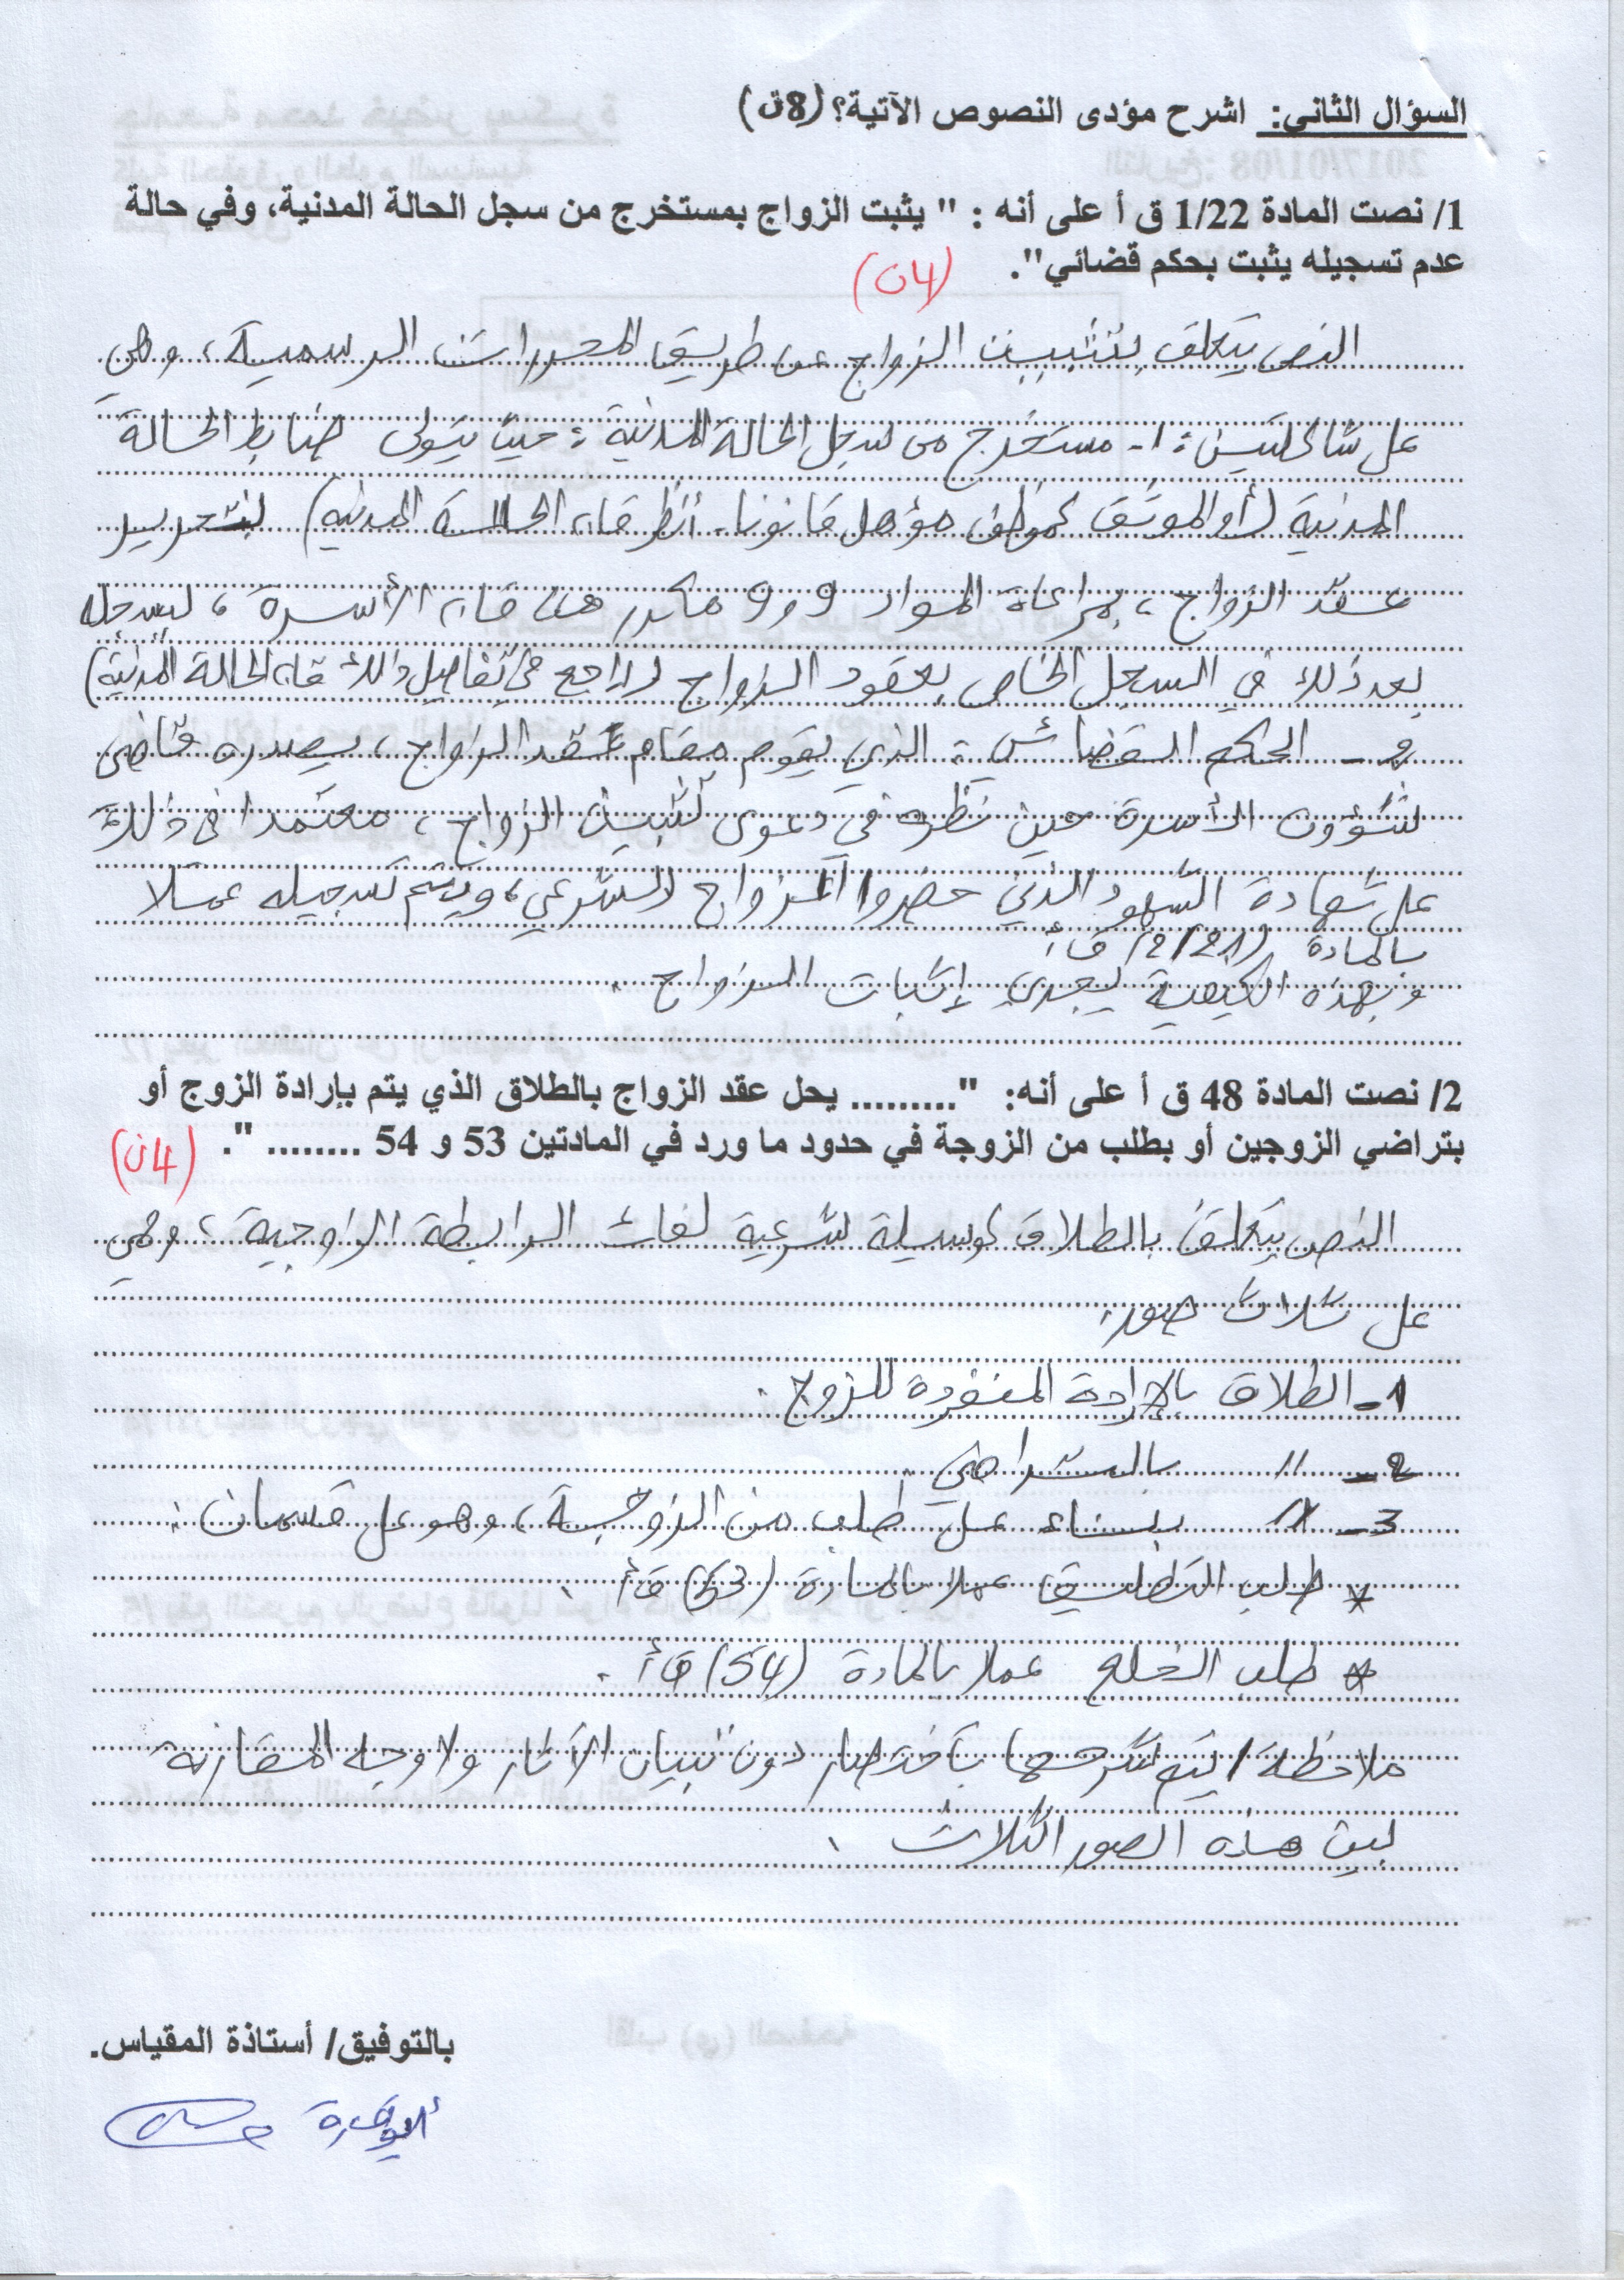 السؤال الثاني: اشرح مؤدى النصوص الآتية؟ (8ن)
1/ نصت المادة 1/22 ق أ على أنه : " يثبت الزواج بمستخرج من سجل الحالة المدنية، وفي حالة
عدم تسجيله يثبت بحكم قضائي".
(4ن)
النص يتعلق بتثبيت الزواج عن طريق المحررات الرسمية، وهي
على شاكلتين: 1- مستخرج من سجل الحالة المدنية: حيث يتولى ضابط الحالة
المدنية (أو الموثق كموظف مؤهل قانونا. أنظر قا. الحالة المدنية) بتحرير
عقد الزواج، بمراعاة المواد 9 و 9 مكرر من قا. الأسرة، ليسجله
بعد ذلك في السجل الخاص بعقود الزواج (راجع في تفاصيل ذلك قا. الحالة المدنية)
2- الحكم القضائي: الذي يقوم مقام عقد الزواج، يصدره قاضي
شؤون الأسرة حين نظره في دعوى تثبيت الزواج، معتمدا في ذلك
على شهادة الشهود الذين حضروا الزواج الشرعي، ويتم تسجيله عملا
بالمادة (2/21) ق أ
وبهذه الكيفية يجري إثبات الزواج.
2/ نصت المادة 48 ق أ على أنه: "......... يحل عقد الزواج بالطلاق الذي يتم بإرادة الزوج أو
بتراضي الزوجين أو بطلب من الزوجة في حدود ما ورد في المادتين 53 و 54 ........ ".
(4ن)
النص يتعلق بالطلاق كوسيلة شرعية لفك الرابطة الزوجية، وهي
على ثلاث صور:
1- الطلاق بالإرادة المنفردة للزوج.
2- // بالتراضي.
3- // بناء على طلب من الزوجة، وهو على قسمان:
* طلب التطليق عملا بالمادة (53) ق أ.
* طلب الخلع عملا بالمادة (54) ق أ.
ملاحظة / يتم شرحها باختصار دون تبيان الآثار ولا وجه المقارنة
بين هذه الصور الثلاث.
بالتوفيق/ أستاذة المقياس.